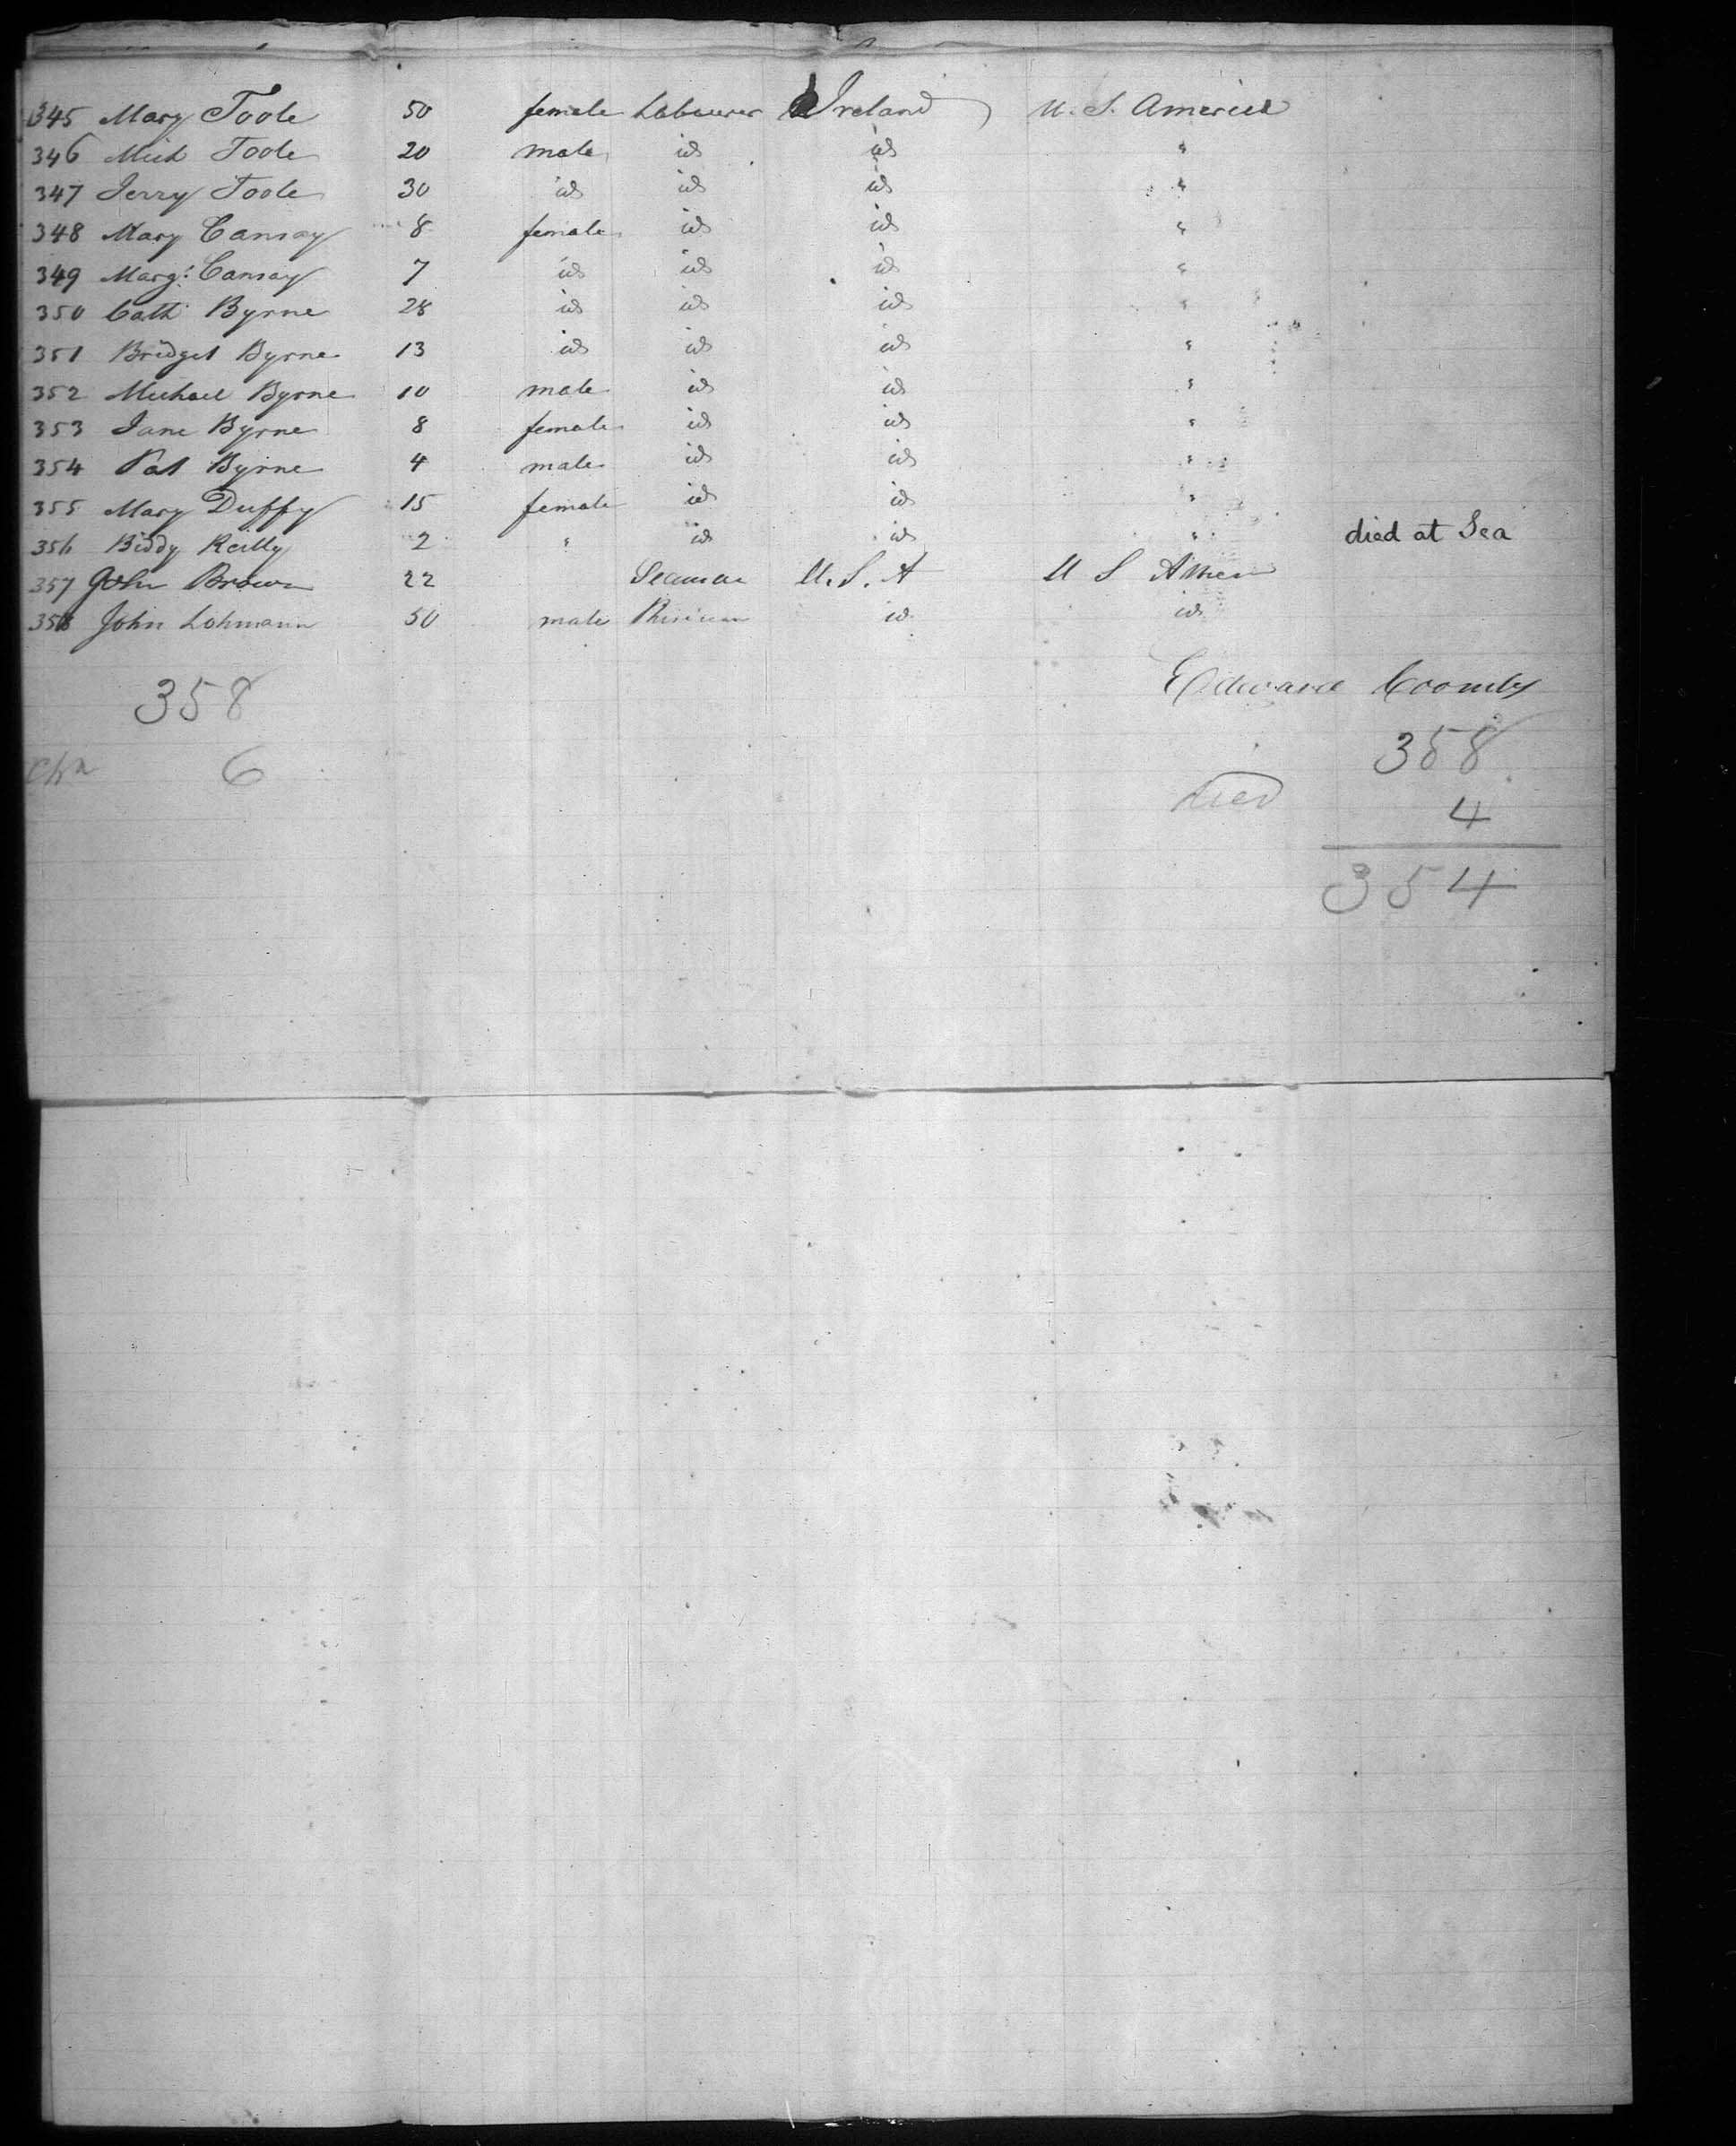 345 Mary Toole 50 female Labourer Ireland U. S. America
346 Mick Toole 20 male id id "
347 Jerry Toole 30 id id id "
348 Mary Cansay 8 female id id "
349 Marg: Cansay 7 id id id "
350 Cath Byrne 28 id id id "
351 Bridget Byrne 13 id id id "
352 Michael Byrne 10 male id id "
353 Jane Byrne 8 female id id "
354 Pat Byrne 4 male id id "
355 Mary Duffy 15 female id id "
356 Biddy Reilly 2 " id id " died at Sea
357 John Brown 22 Seaman U. S. A U S Amer
358 John Lohmann 50 male id id
Edward Coombs
358
358
6
died 4
354